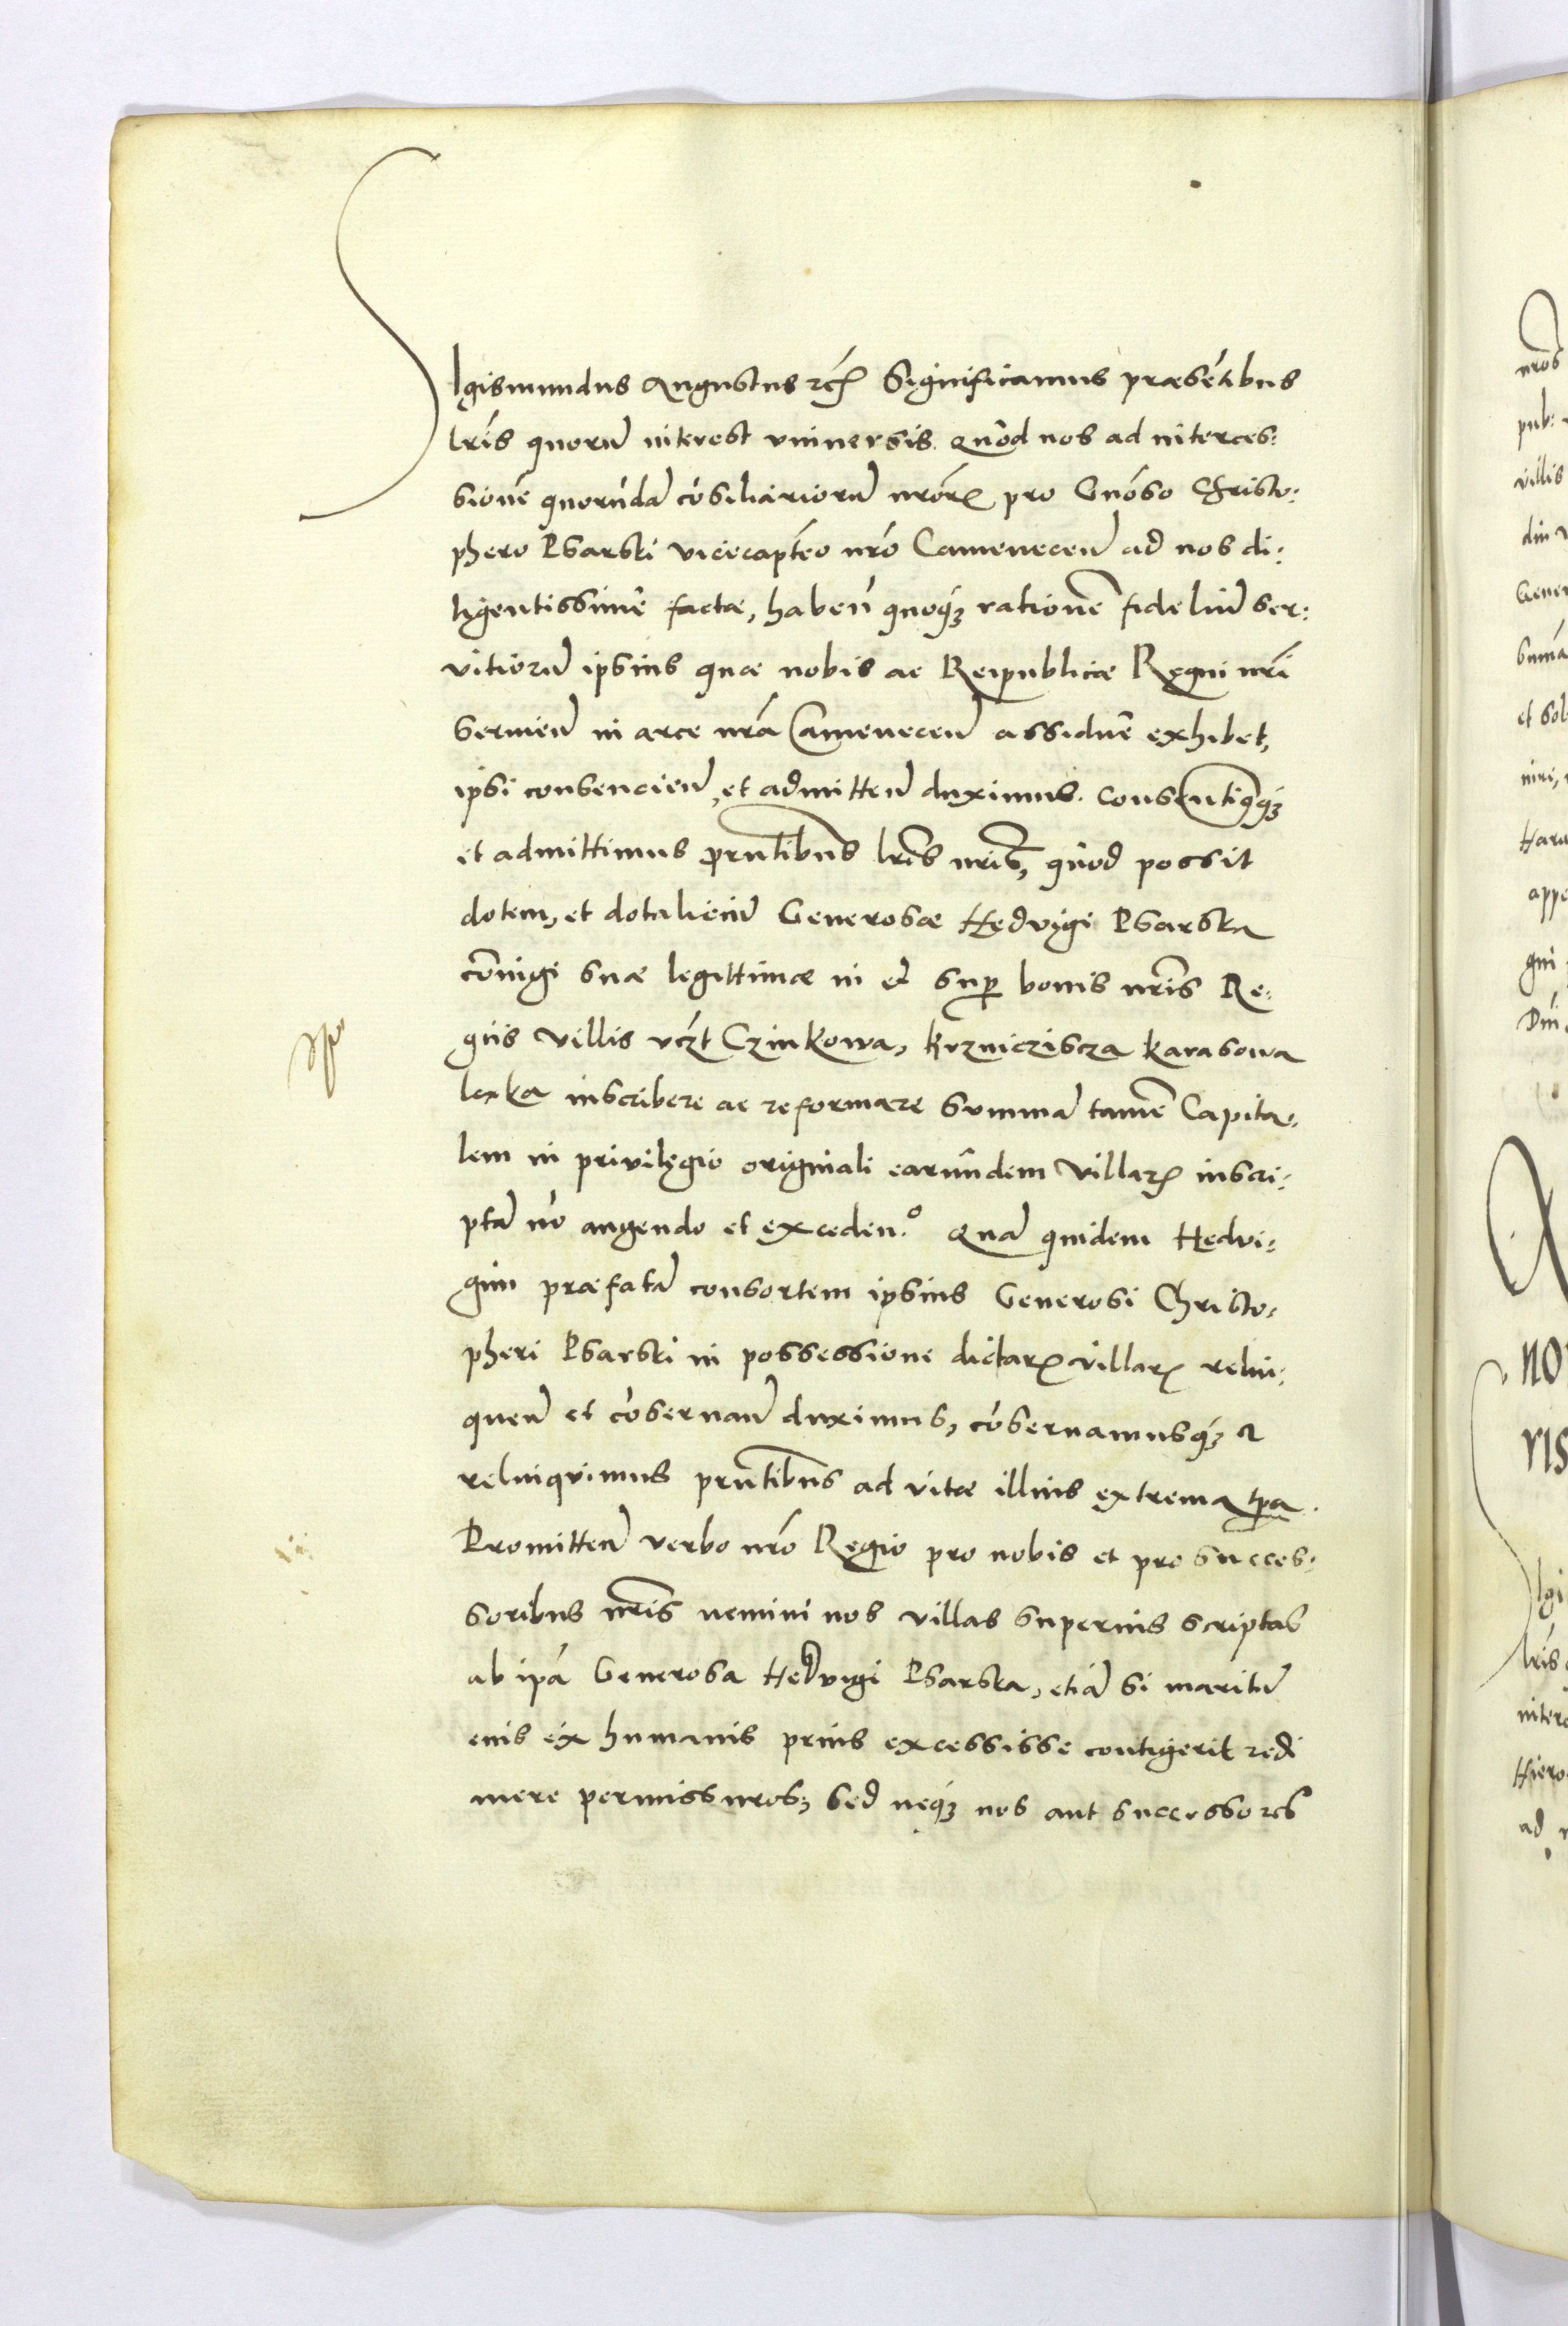 Sigismundus Augustus rcꝭ Significamus præsẽtibus
lrĩs quorũ interest vniuersis. Quòd nos ad interces:
sionẽ quorũdã cõsiliariorũ nrõrꝝ pro Gnõso Christo:
phero Psarski vicecaptẽo nrõ Camenecen̄ ad nos di:
ligentissimè factæ, haben̄ quoqꝫ rationẽ fideliũ ser:
vitiorũ ipsius quæ nobis ac Reipublicæ Regni nrĩ
seruien̄ in arce nrã Camenecen̄ assiduè exhibet,
ipsi consencien̄, et admitten̄ duximus. Consentiqꝫ
et admittimus prntibus lrĩs nrĩs, quòd possit
dotem, et dotaliciũ Generosæ Hedvigi Psarska
cõiugi suæ legittimæ in et suꝑ bonis nrĩs Re:
giis villis vcꝫt Czinkowa, Krznicziscza Karasowa
leska inscribere ac reformare summã tamẽ Capita:
lem in privilegio originali earundem villarꝝ inscri:
ptã nõ augendo et exceden.º Quã quidem Hedvi:
gim præfatã consortem ipsius Generosi Christo:
pheri Psarski in possessione dictarꝝ villarꝝ relin:
quen̄ et cõseruan̄ duximus, cõseruamusqꝫ et
relinquimus prntibus ad vitæ illius extrema tpa.
Promitten̄ verbo nrõ Regio pro nobis et pro succes:
soribus nrĩs nemini nos villas superius scriptas
ab ipã Generosa Hedvigi Psarska, etiã si maritũ
eius ex humanis prius excessisse contigerit redi
mere permissuros, sed neqꝫ nos aut successores